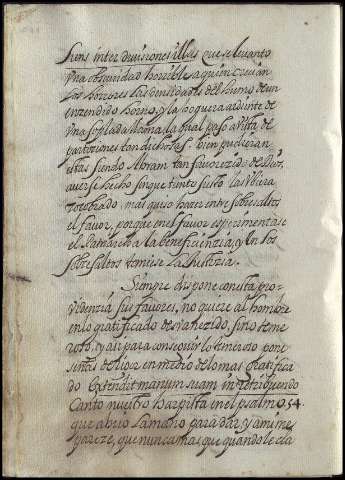 siens inter divisiones illas que se levanto
Una obscuridad horrible a quien crecian
Los horrores las densidades del humo de un
enzendido horno, y la hoguera ardiente de
Una soplada llama, la qual paso a vista de
particiones tan dichosas. bien pudieran
estas siendo Abram tan favorezido de Dios,
averse hecho sin que tanto susto las Ubiera
pero quiso hazer entre sobresaltos
el favor, porque en el favor experimentase
el Patriarcha la beneficienzia, y en los
sobresaltos temiese La Justizia.
Siempre dispone con esta pro-
videnzia sus favores, no quiere al hombre
en lo gratificado desvanezido, sino teme
roso, y asi para conseguir lo temeroso pone
señas de rigor en medio de lo mas gratifica
do extendit manum suam in retribuendo
Canto nuestro Harpista en el psalmo 54.
que abrio la mano para dar y a mi me
pareze, que nunca mas que quando le da